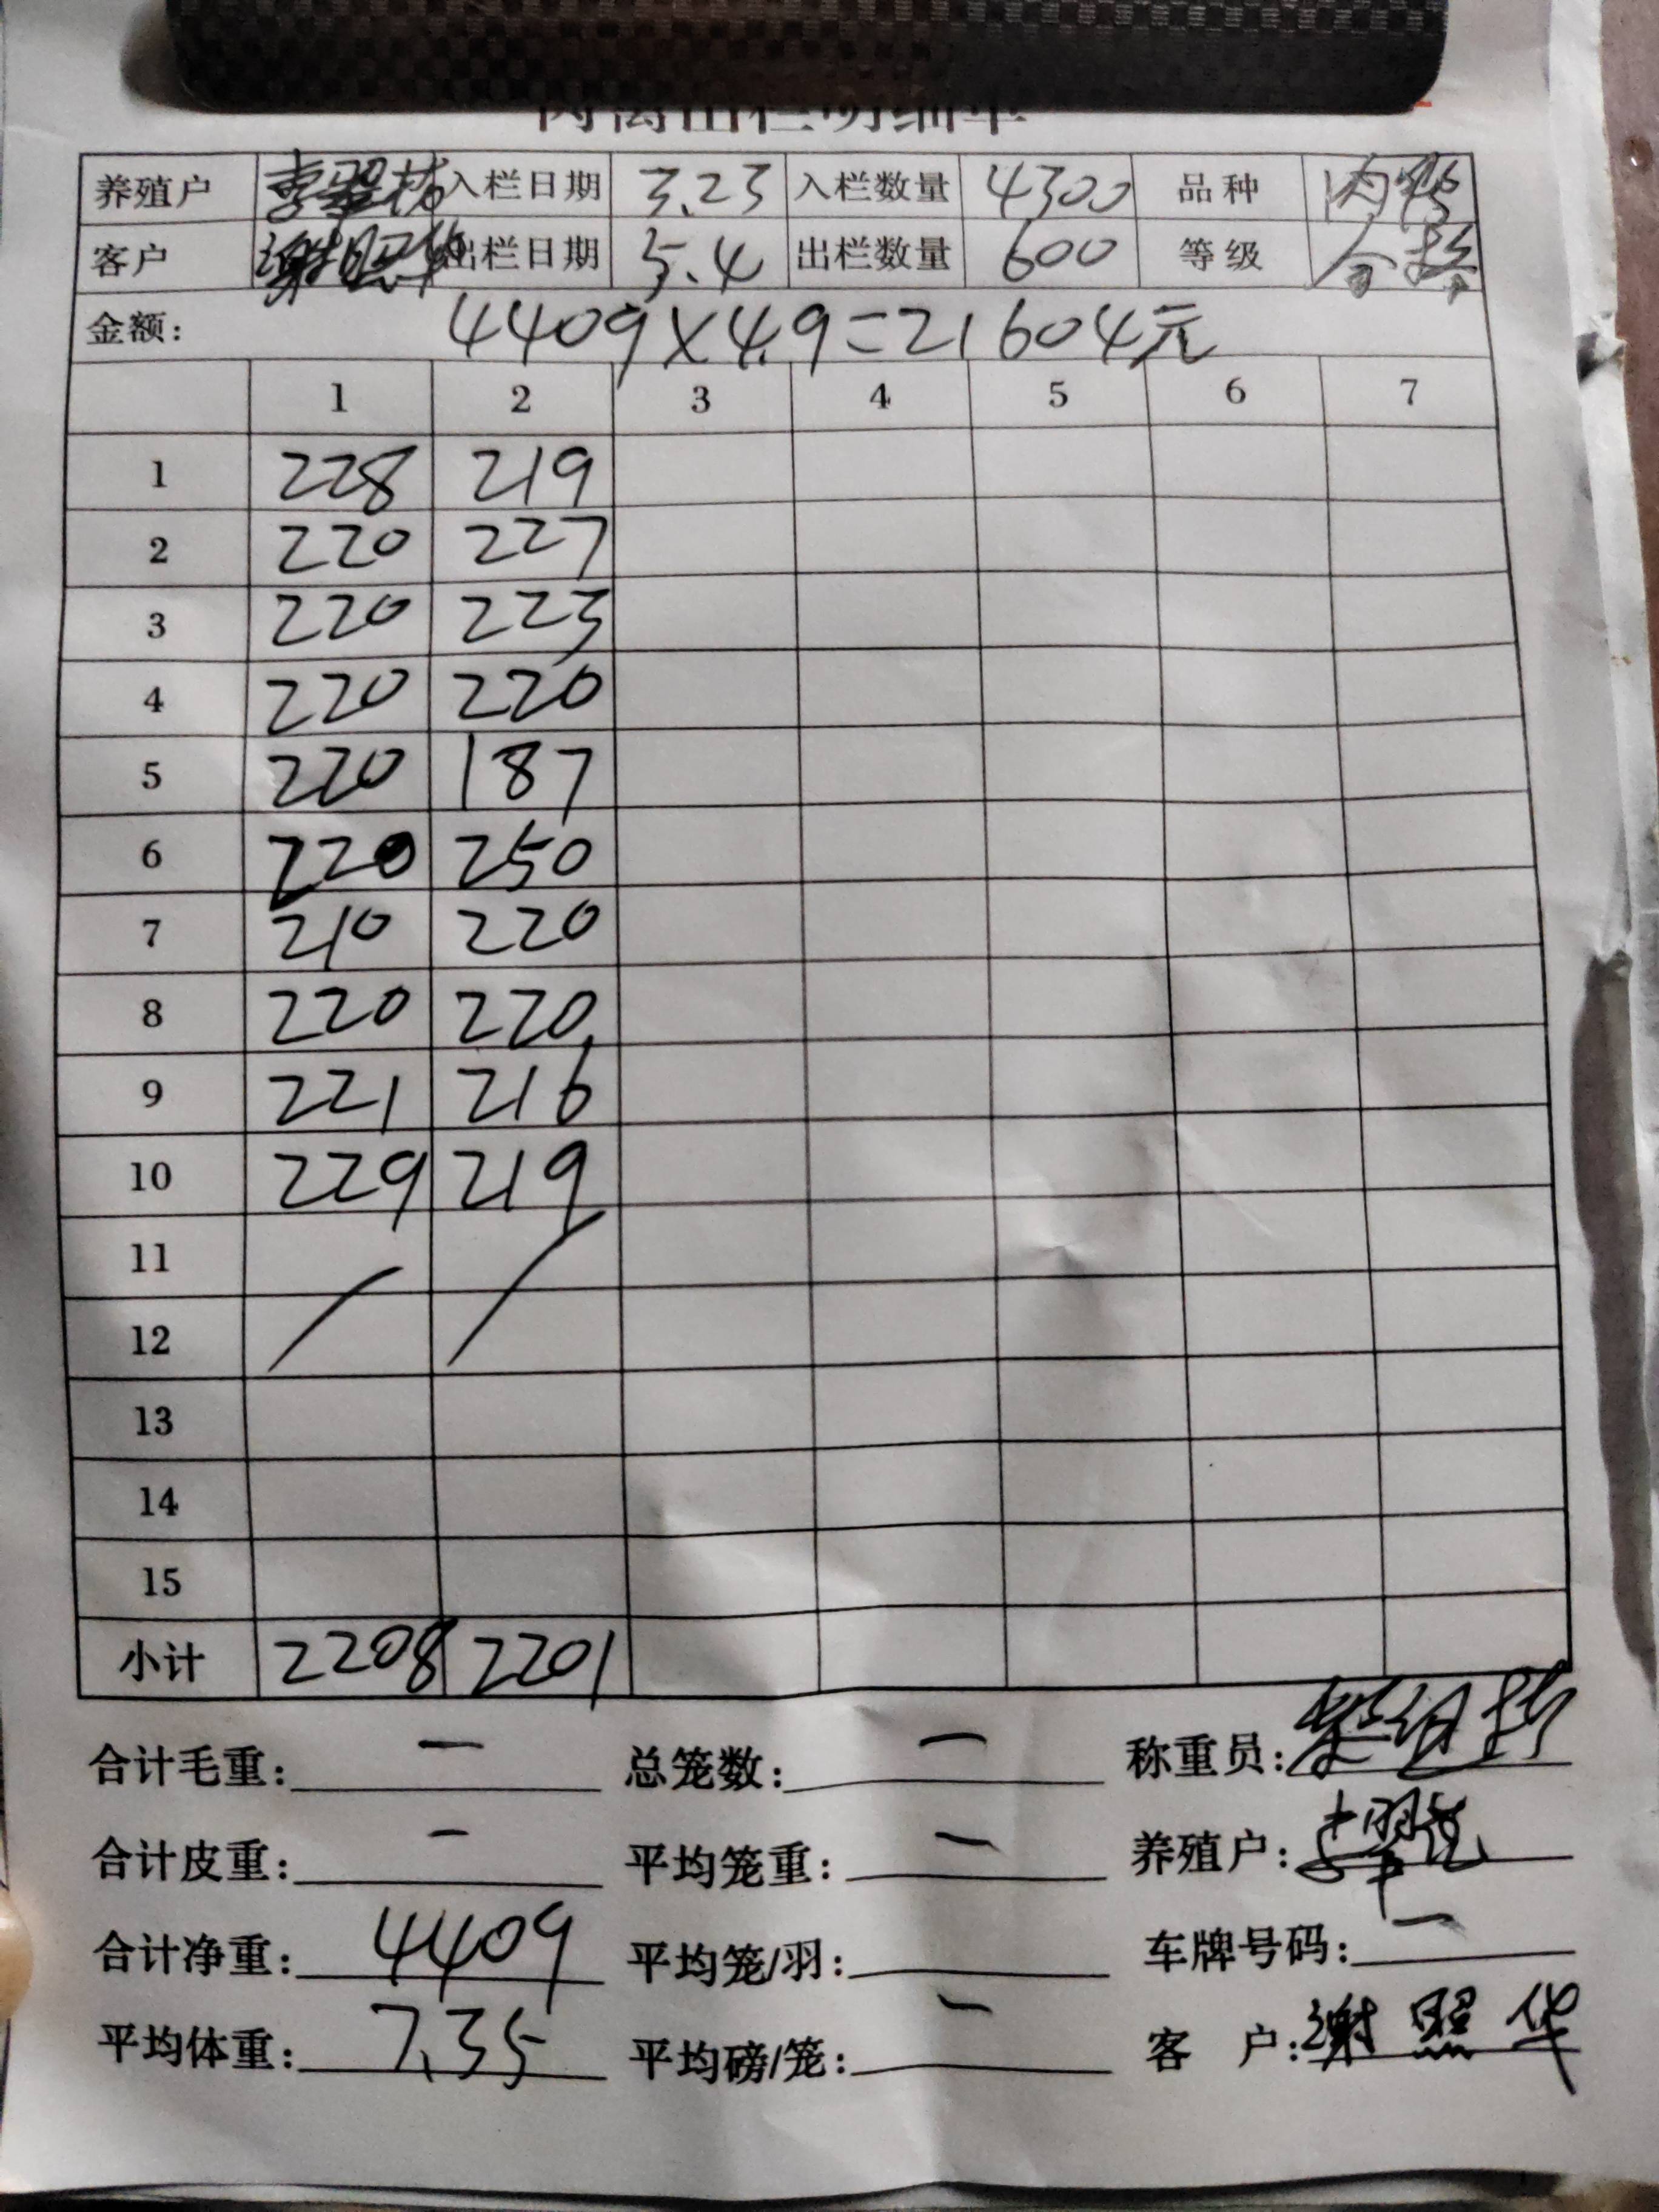 养殖户 入栏日期 3.23 入栏数量 4300 品种 肉鸭
客户 谢照华 出栏日期 5.4 出栏数量 600 等级 合格
金额: 4409×4.9=21604元
1 2 3 4 5 6 7
1 228 219
2 220 227
3 220 223
4 220 220
5 220 187
6 220 250
7 210 220
8 220 220
9 221 216
10 229 219
11
12
13
14
15
小计 2208 2201
合计毛重: — 总笼数: — 称重员:
合计皮重: — 平均笼重: — 养殖户:
合计净重: 4409 平均笼/羽: 车牌号码: —
平均体重: 7.35 平均磅/笼: — 客户: 谢照华